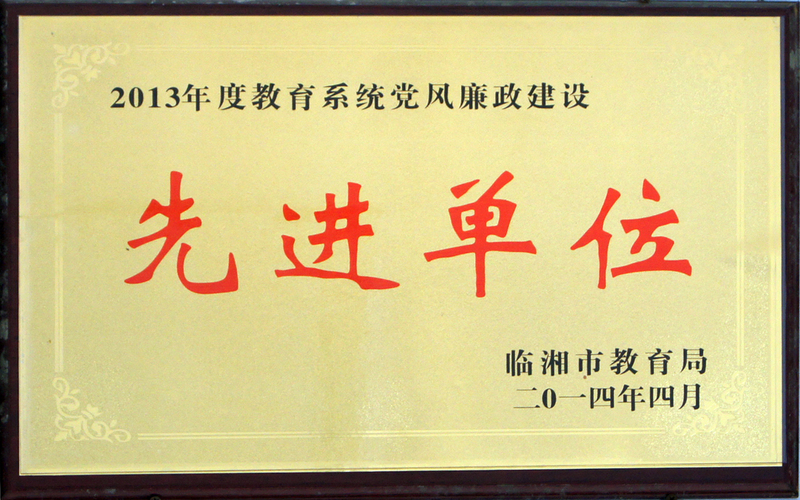 2013年度教育系统党风廉政建设
先进单位
临湘市教育局
二0一四年四月